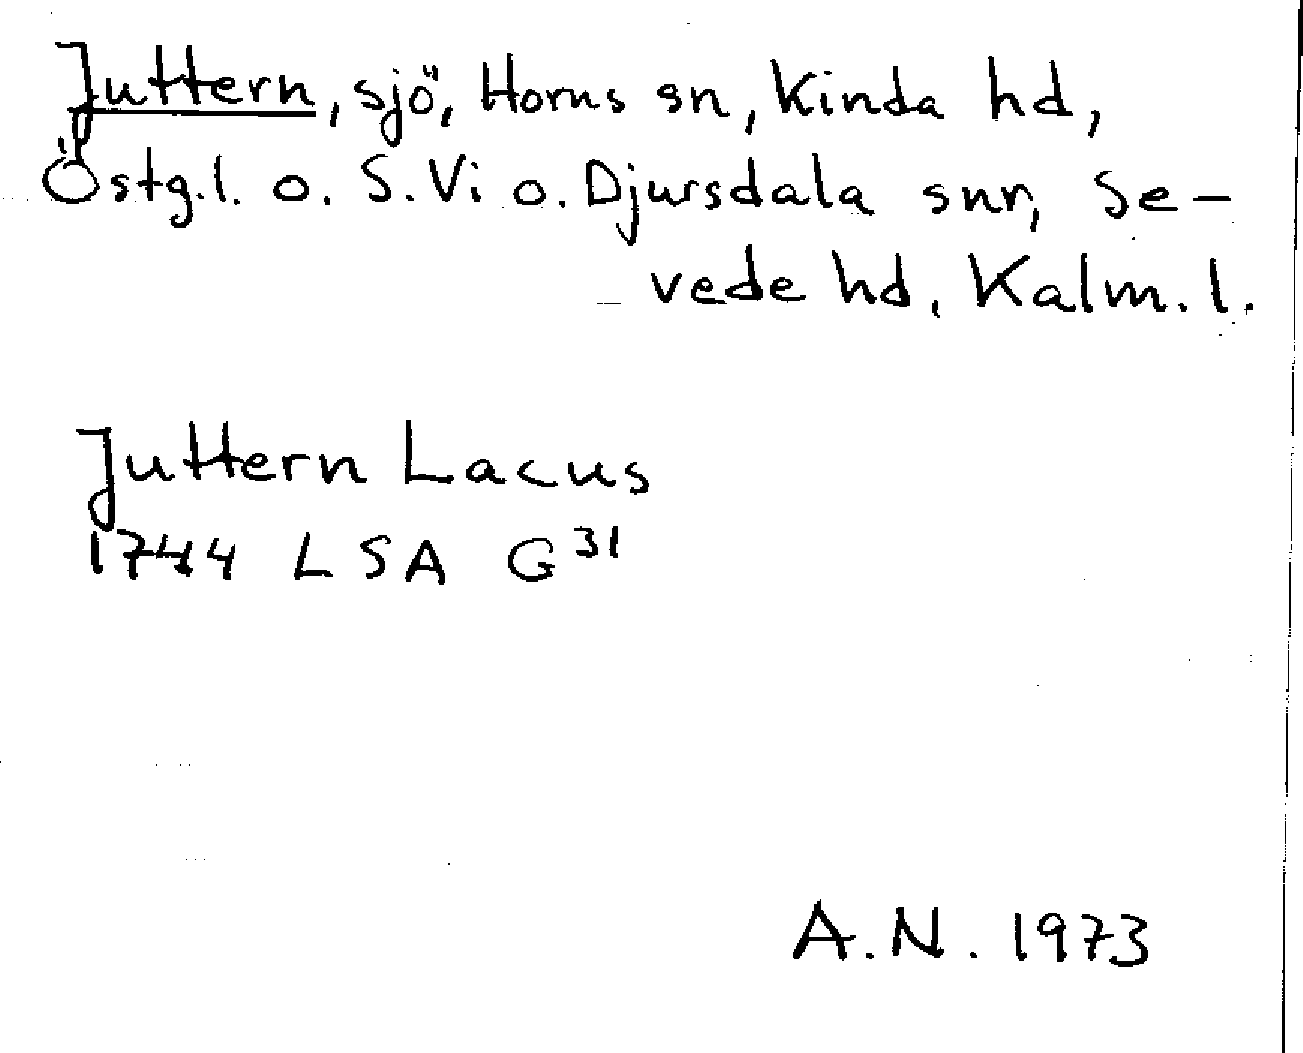 Juttern, sjö, Horns sn, Kinda hd,
Östg.l. o. S.Vi o. Djursdala snr, Se-
vede hd, Kalm. l.
Juttern Lacus
1744 LSA G 31
A.N. 1973